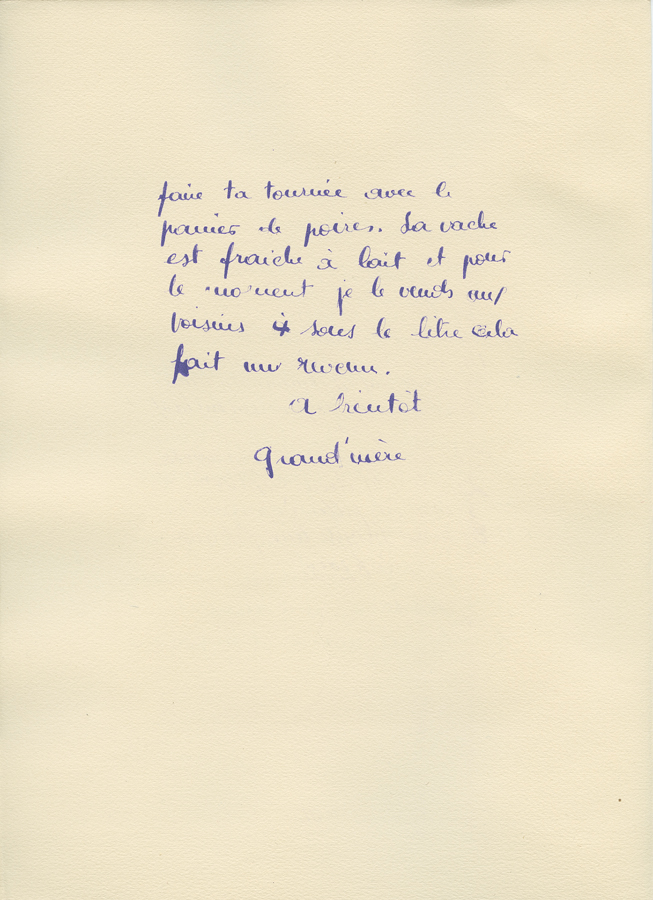 faire ta tournée avec le
panier de poires. La vache
est fraiche à lait et pour
le moment je le vends aux
voisins 4 sous le litre cela
fait un revenu.
A bientôt
Grand'mère